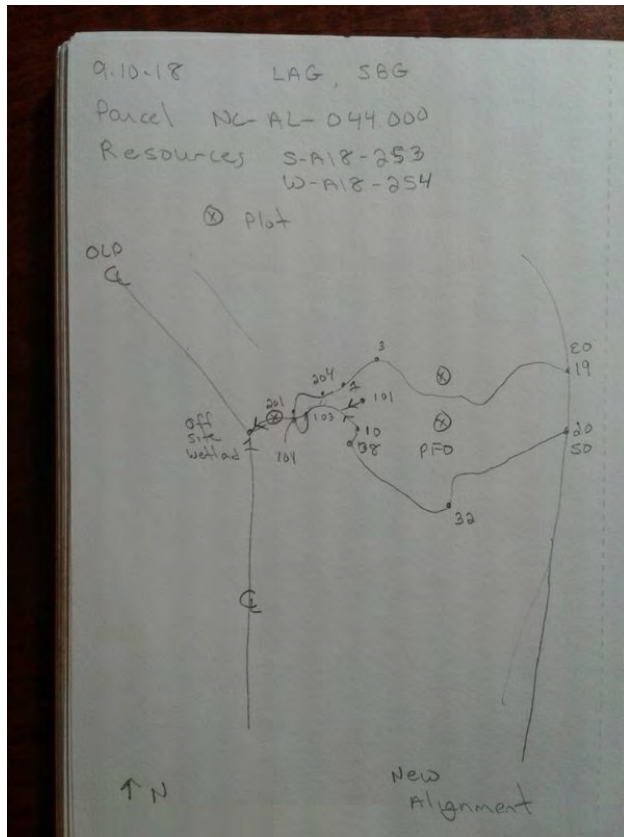 9.10.18 LAG, SBG
Parcel NC-AL-044.000
Resources S-A18-253
W-A18-254
ⓧ Plot
OLD
℄
3
EO
19
204
2
201
101
103
Off
Site
Wetlad
104
10
38
PFO
20
SO
32
℄
↑ N
New
Alignment